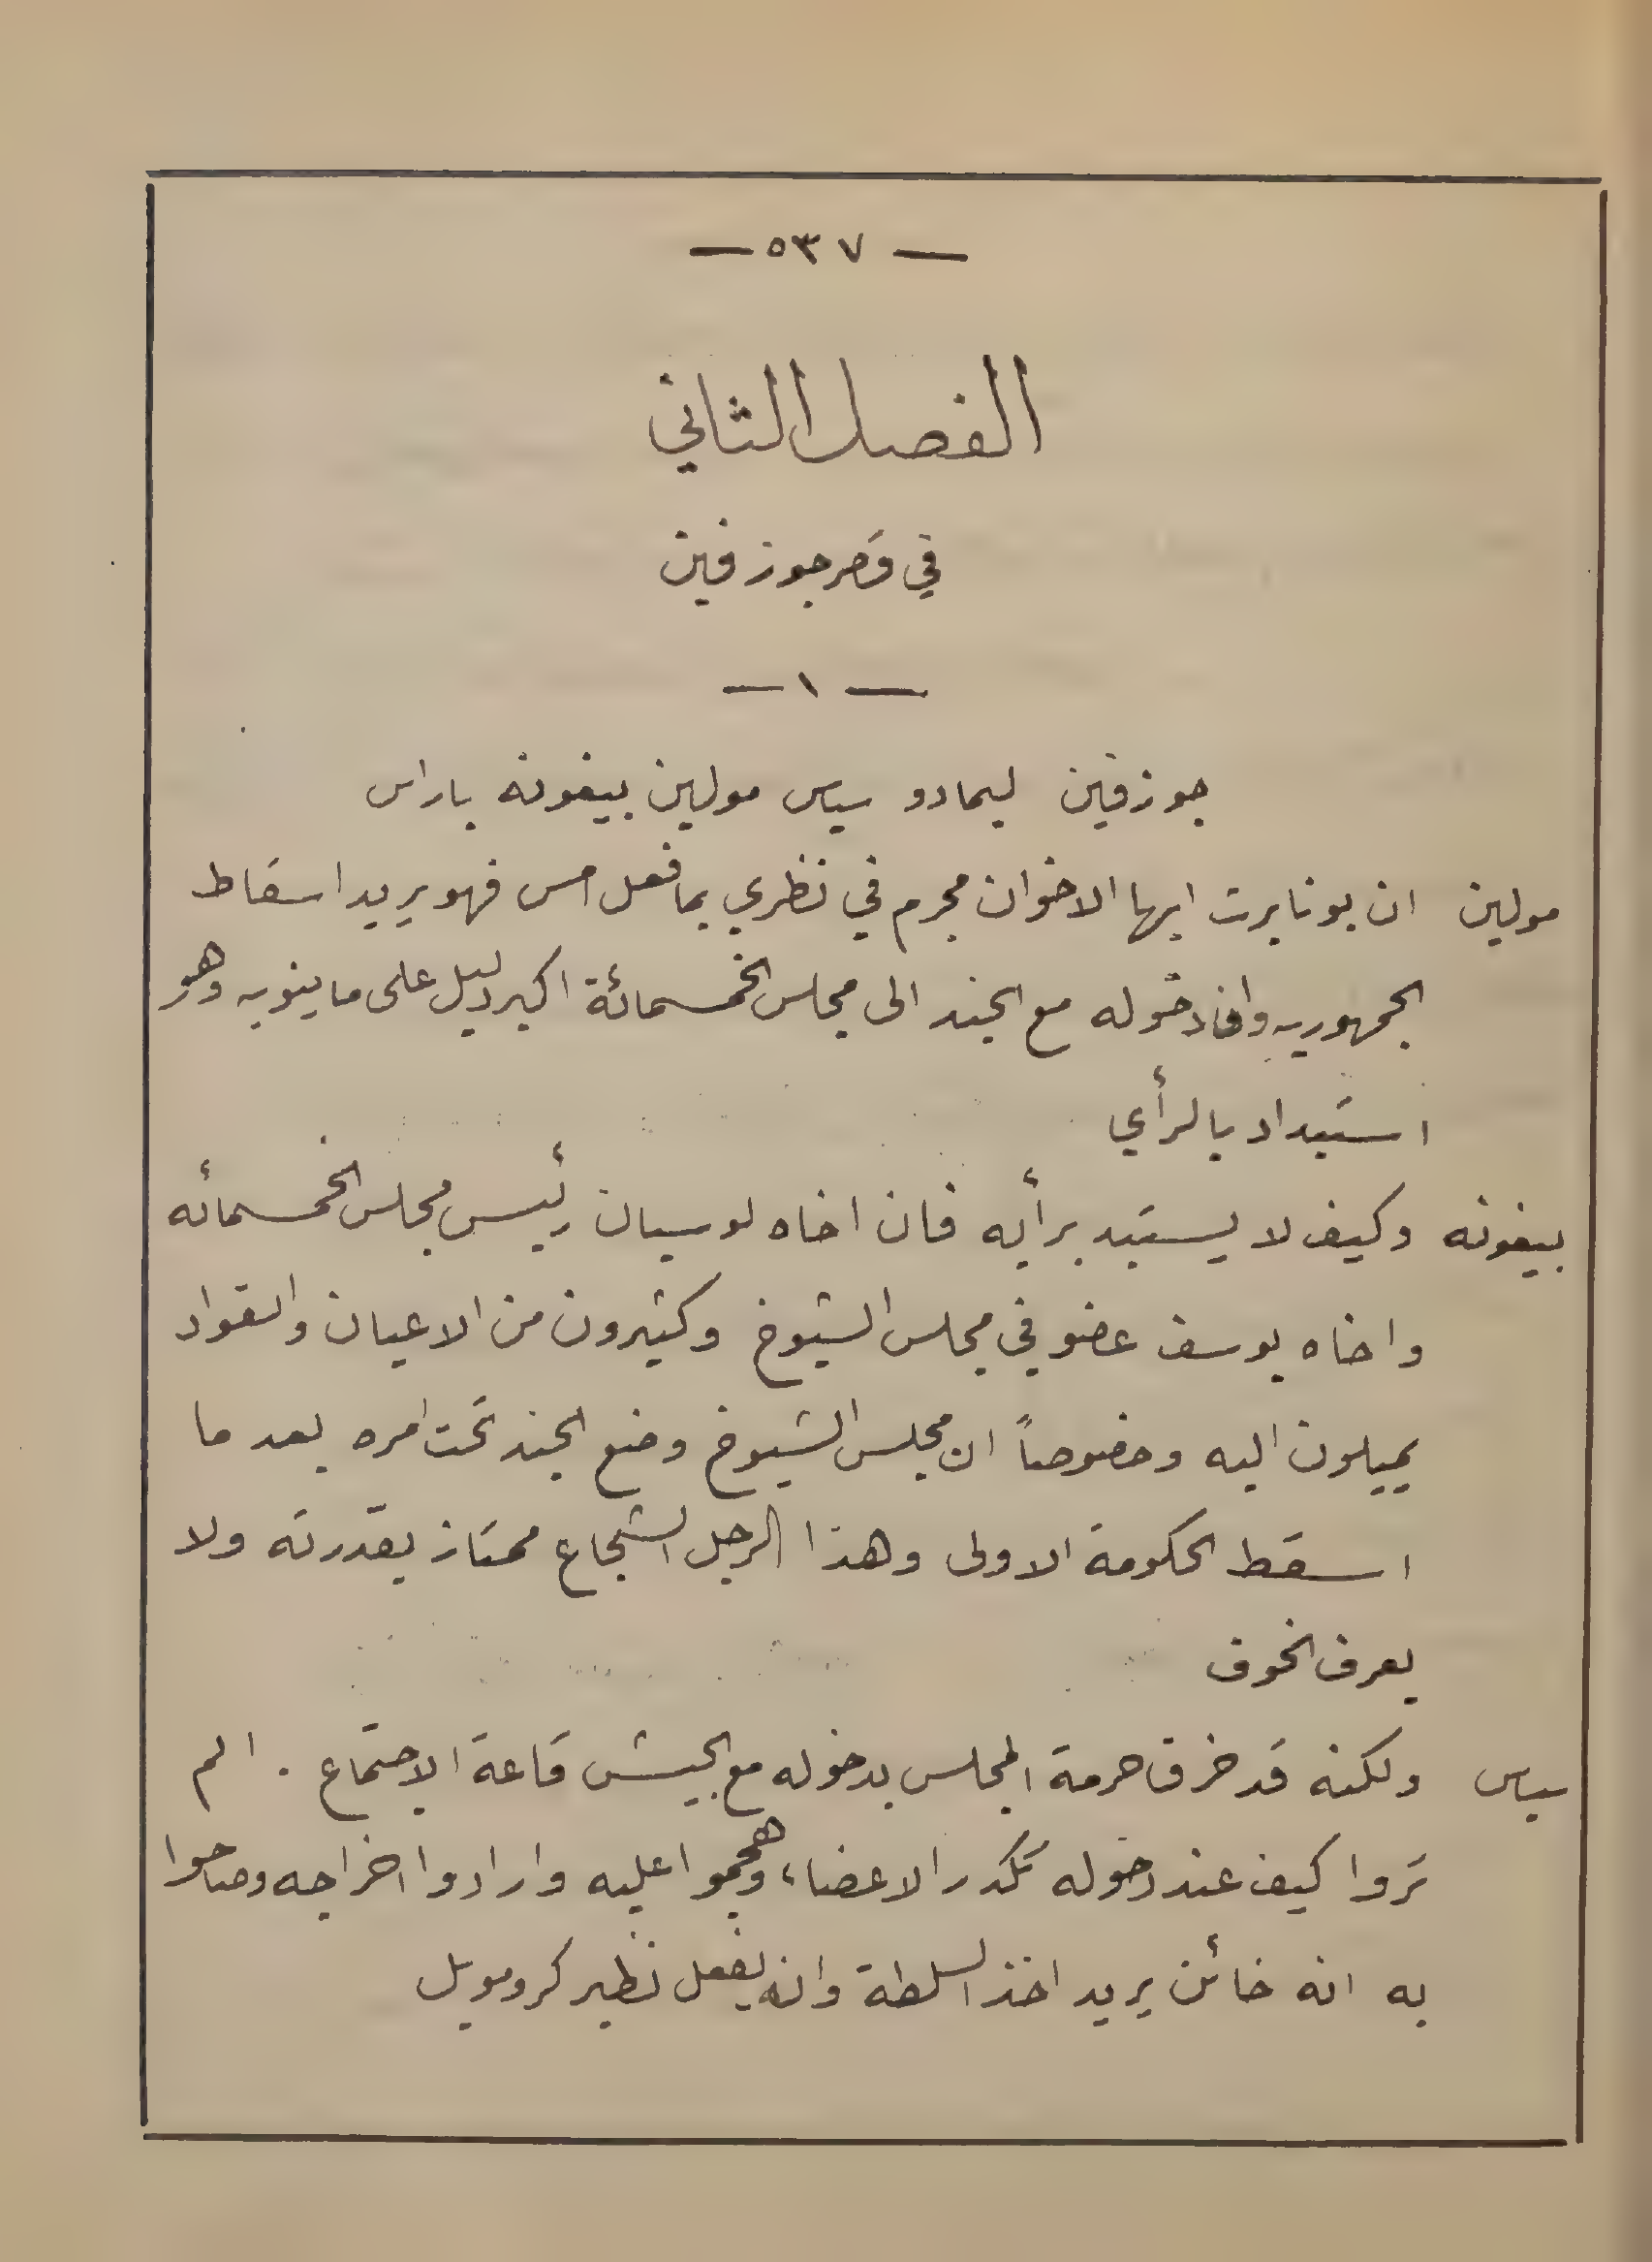 — ٥٣٧ —
الفصل الثاني
في قصر جوزفين
— ١ —
جوزفين ليمادو سياس مولين بيغونه باراس
مولين ان بونابرت ايها الاخوان مجرم في نظري بما فعل امس فهو يريد اسقاط
الجمهوريه وان دخوله مع الجند الى مجلس الخمسمائة اكبر دليل على ما ينويه وهو
استبداد بالرأي
بيغونه وكيف لا يستبد برأيه فان اخاه لوسيان رئيس مجلس الخمسمائه
واخاه يوسف عضو في مجلس الشيوخ وكثيرون من الاعيان والقواد
يميلون اليه وخصوصاً ان مجلس الشيوخ وضع الجند تحت امره بعد ما
اسقط الحكومة الاولى وهذا الرجل الشجاع ممتاز بقدرته ولا
يعرف الخوف
سياس ولكنه قد خرق حرمة المجلس بدخوله مع الجيش قاعة الاجتماع . الم
تروا كيف عند دخوله تكدر الاعضاء وهجموا عليه وارادوا اخراجه وصاحوا
به انه خائن يريد اخذ السلطة وانه يفعل نظير كرومويل